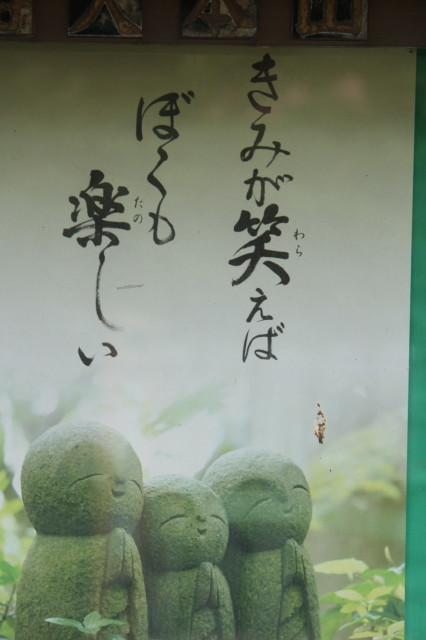 きみが笑えば
わら
ぼくも
楽しい
たの